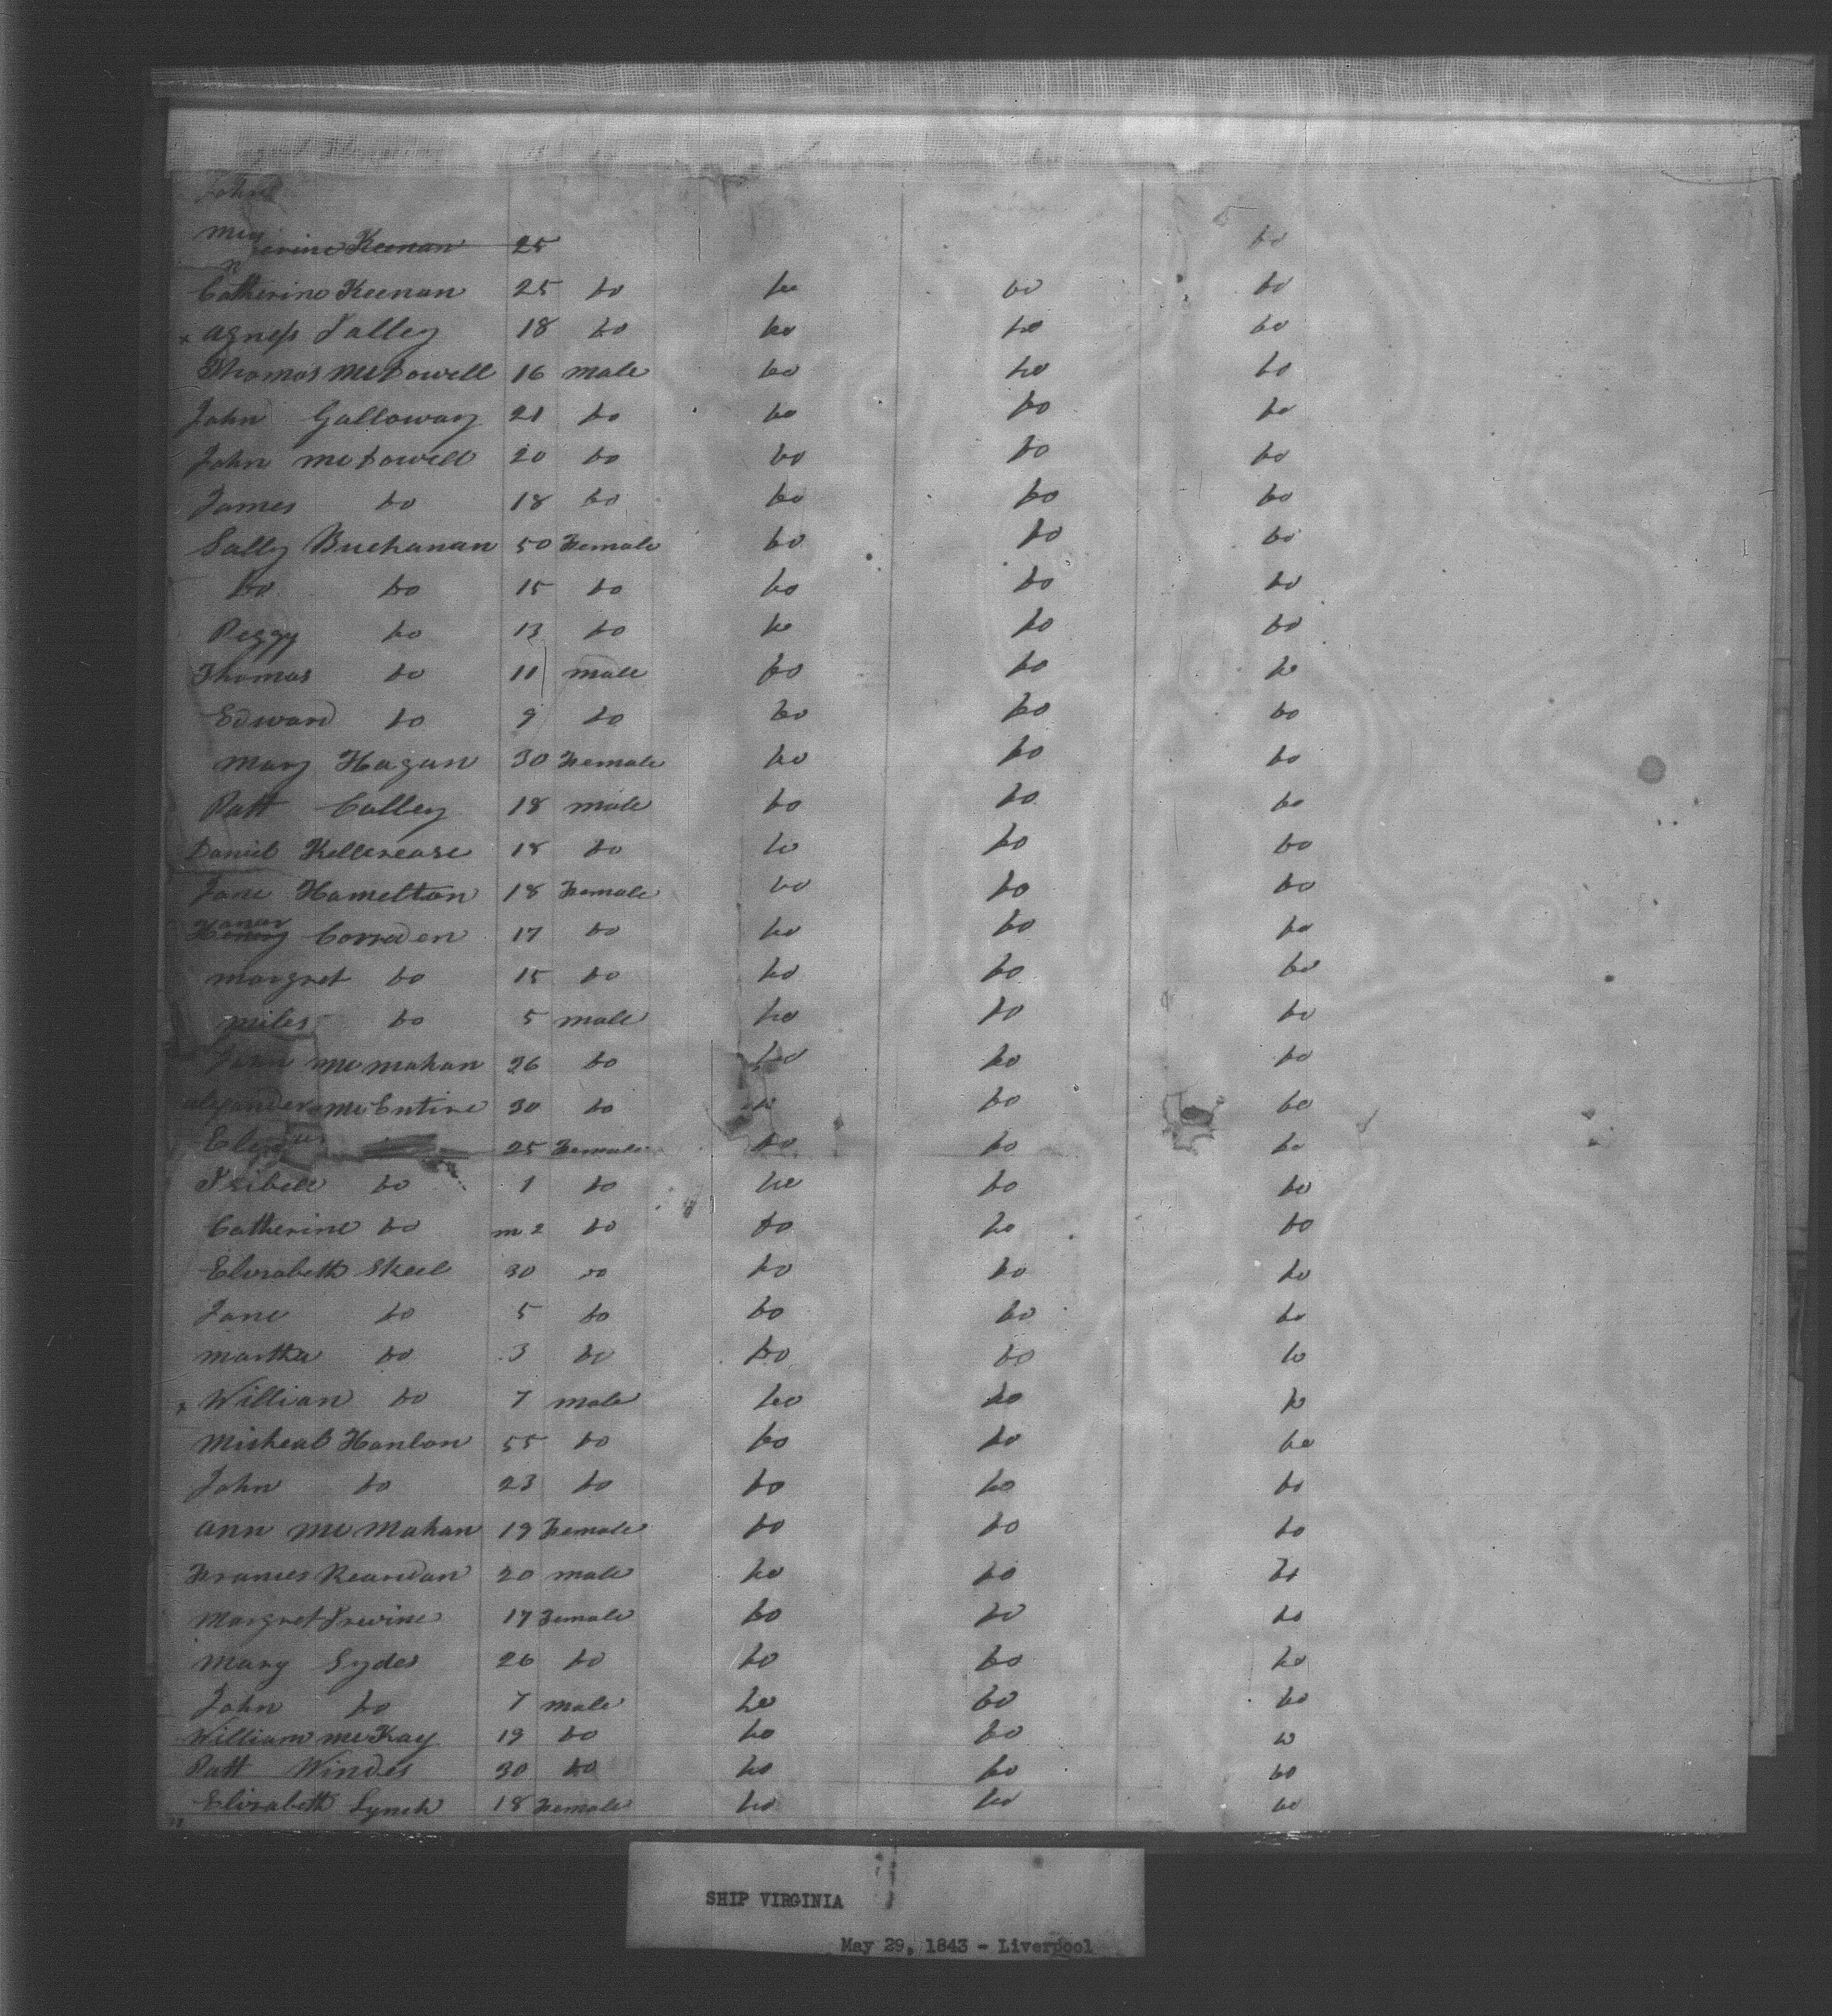 John
erine Keenan 25 do
Catherine Keenan 25 do do do do
x Agness Talley 18 do do do do
Thomas McDowell 16 male do do do
John Galloway 21 do do do do
John McDowell 20 do do do do
James do 18 do do do do
Sally Buchanan 50 Female do do do
do do 15 do do do do
Peggy do 13 do do do do
Thomas do 11 male do do do
Edward do 9 do do do do
Mary Hagan 30 Female do do do
Patt Colley 18 male do do do
Daniel 18 do do do do
Jane Hamelton 18 Female do do do
Honor Corraden 17 do do do do
Margret do 15 do do do do
Miles do 5 male do do do
John McMahan 26 do do do do
Alexander McEntire 30 do do do do
25 Female do do do
Isibell do 1 do do do do
Catherine do m 2 do do do do
Elizabeth Skeel 30 do do do do
Jane do 5 do do do do
Martha do 3 do do do do
x Willian do 7 male do do do
Micheal Hanlon 55 do do do do
John do 23 do do do do
Ann McMahan 19 Female do do do
Frances Reardan 20 male do do do
Margret Irvine 17 Female do do do
Mary Sydes 26 do do do do
John do 7 male do do do
William McKay 19 do do do do
Patt Windes 30 do do do do
Elizabeth Lynch 18 Female do do do
SHIP VIRGINIA
May 29, 1843 - Liverpool